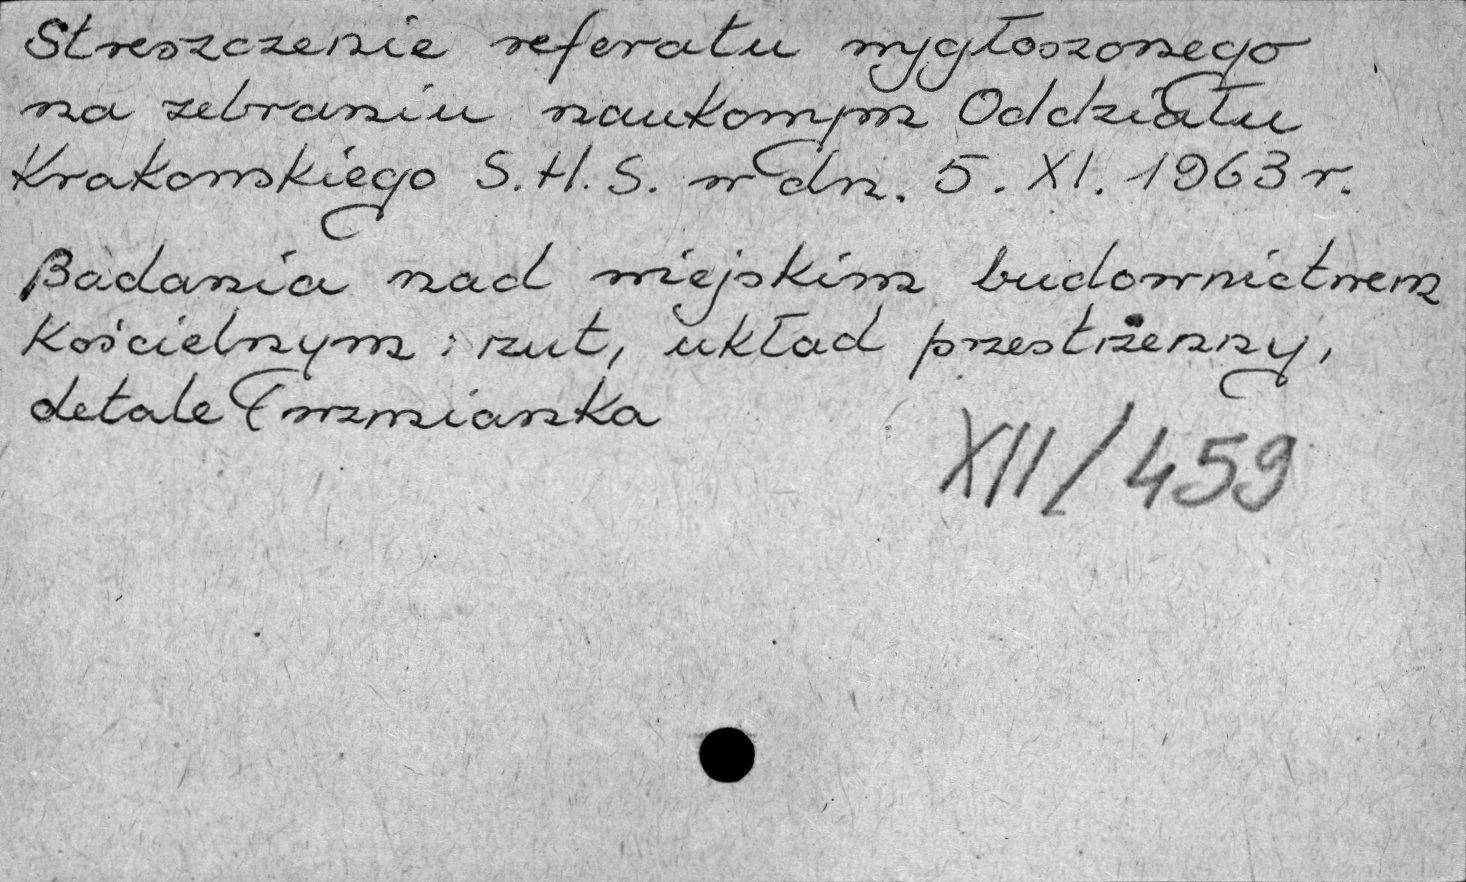 Streszczenie referatu wygłoszonego
na zebraniu naukowym Oddziału
Krakowskiego S.H.S. w dn. 5. XI. 1963 r.
Badania nad miejskim budownictwem
kościelnym: rzut, układ przestrzenny,
detale (wzmianka
XII/459